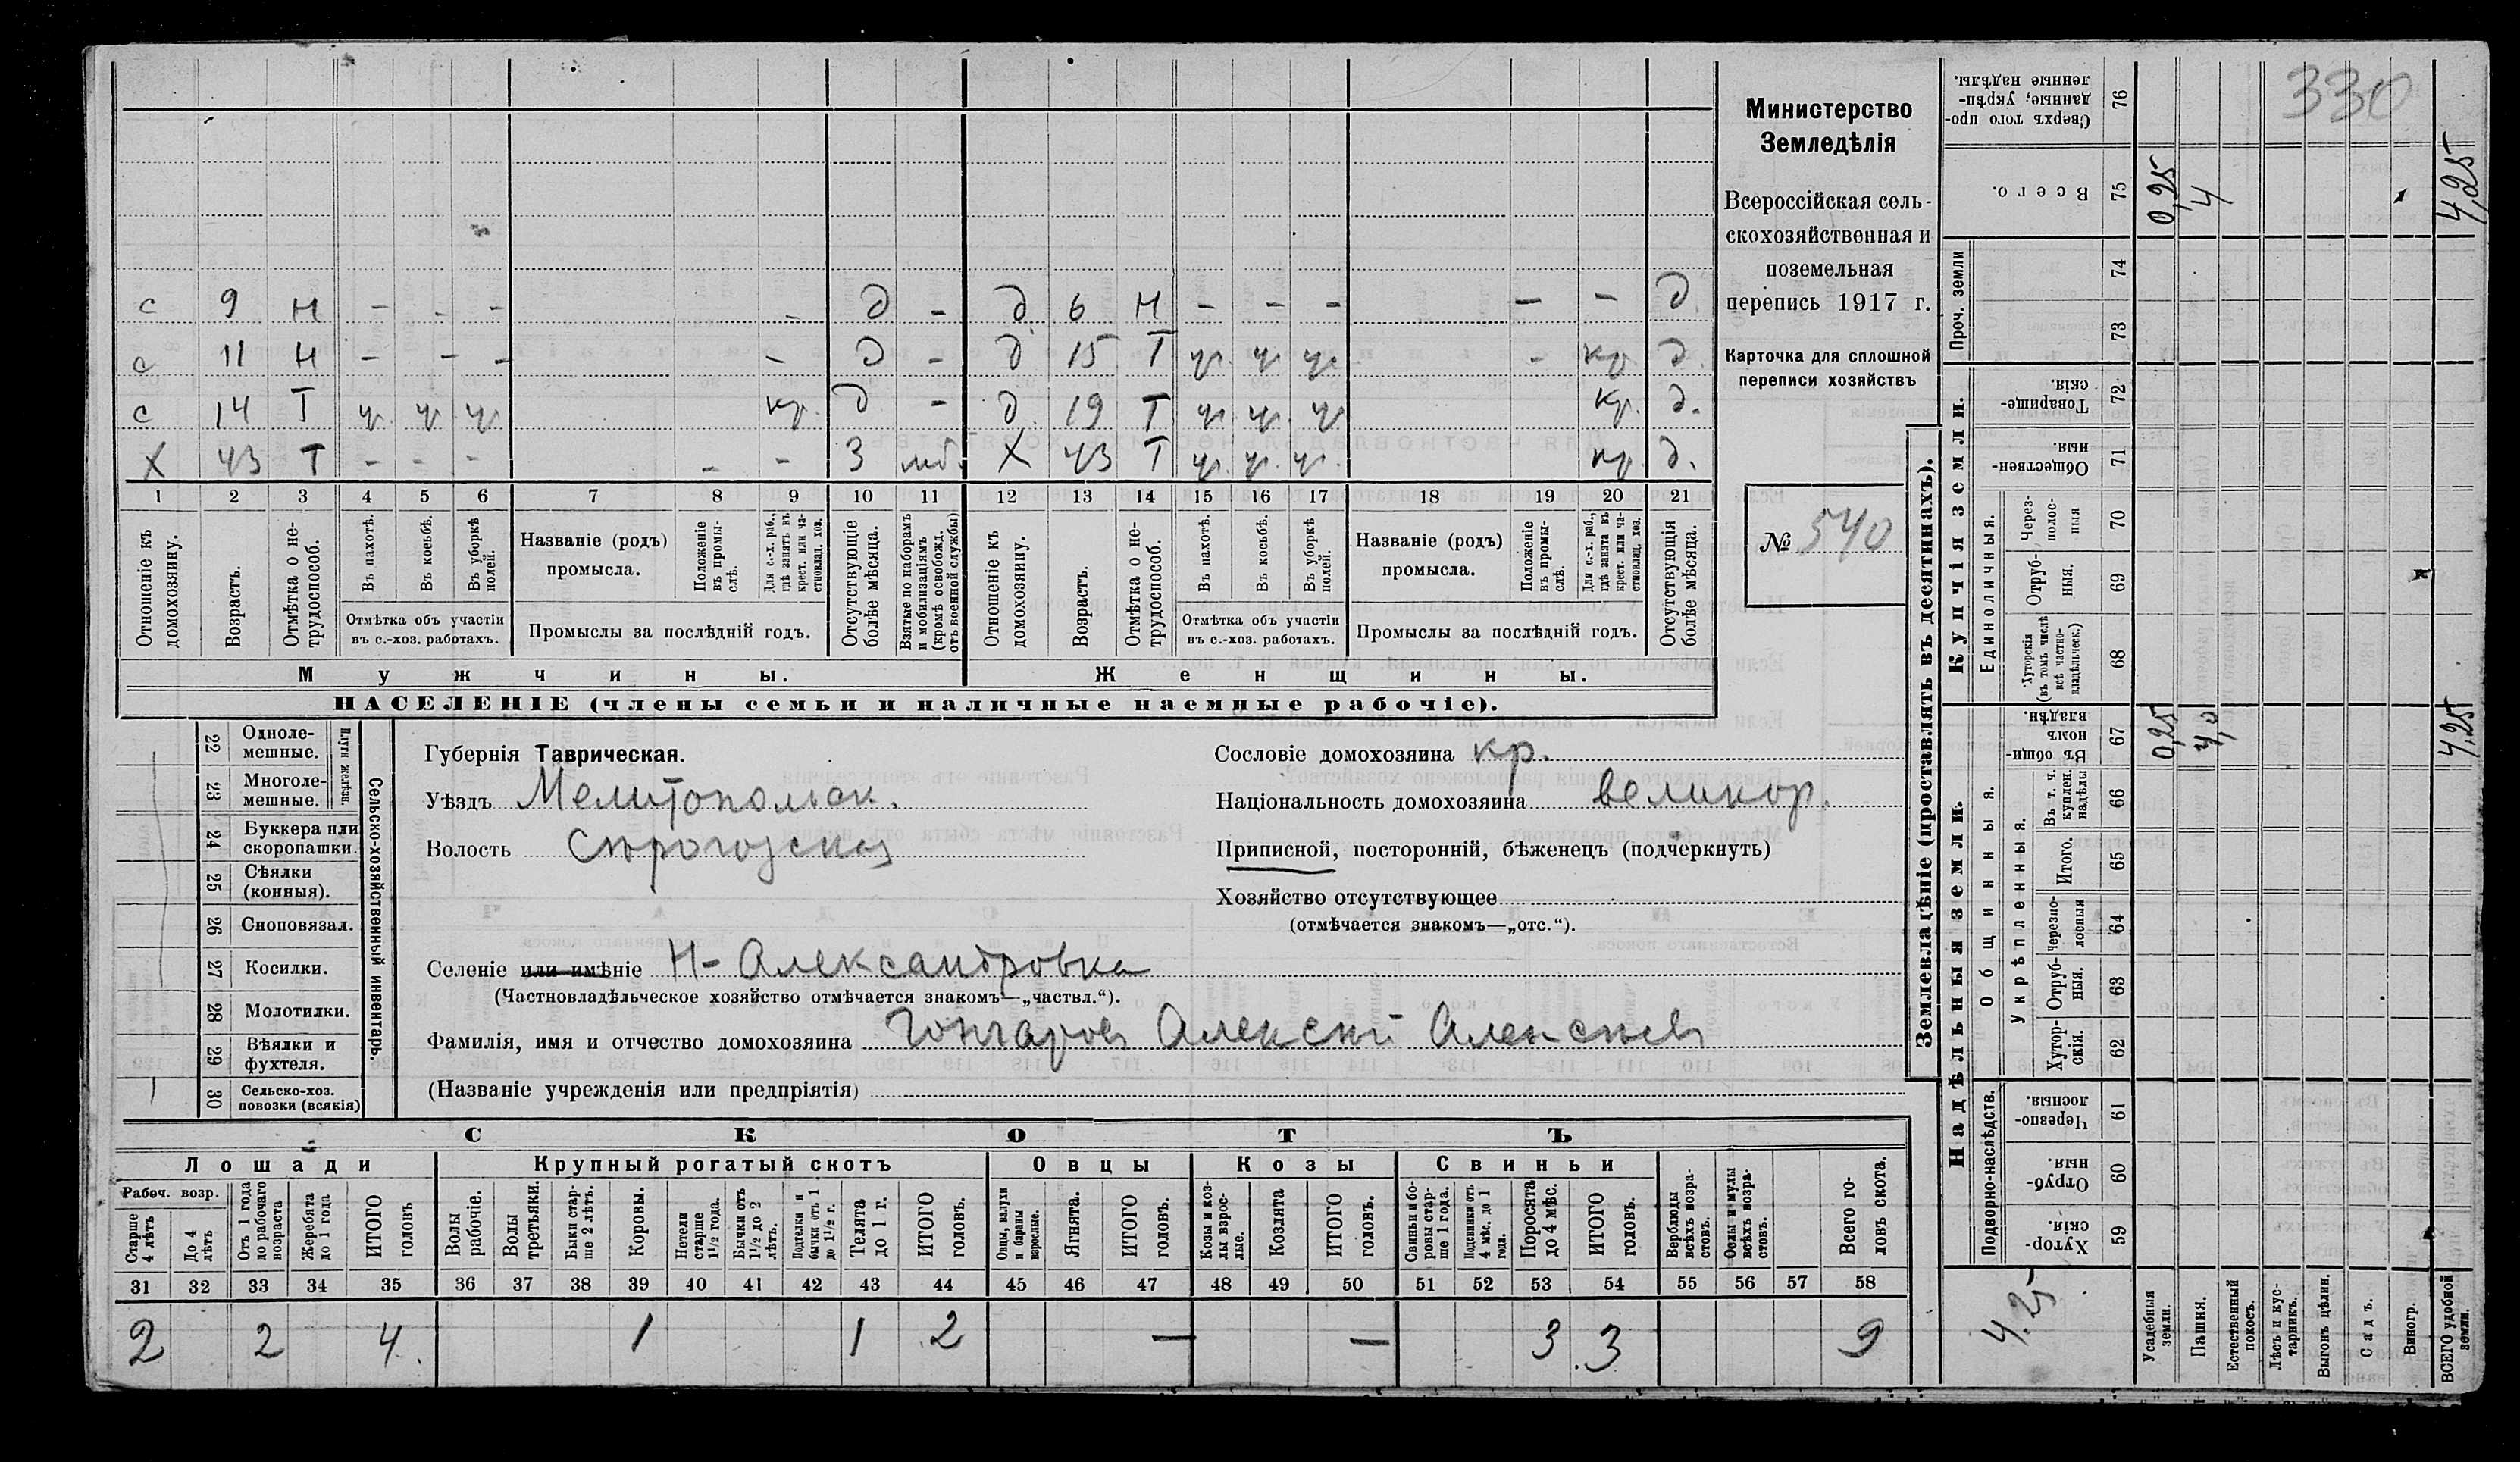 с 9 Н - - - - д - д 6 Н - - - - - д
с 11 Н - - - - д - д 15 Т ч. ч. ч. - кр. д
с 14 Т ч. ч. ч. кр. д - д. 19 Т ч. ч. ч. кр. д.
Х 43 Т - - - - - З мб. Х 43 Т ч. ч. ч. кр. д.
1 2 3 4 5 6 7 8 9 10 11 12 13 14 15 16 17 18 19 20 21
Отношеніе къ домохозяину.
Возрастъ.
Отмѣтка о нетрудоспособ.
Въ пахотѣ.
Въ косьбѣ.
Въ уборкѣ полей.
Отмѣтка объ участіи въ с.-хоз. работахъ.
Названіе (родъ) промысла.
Положеніе въ промыслѣ.
Для с.-х. раб., гдѣ занятъ въ крест. или частновлад. хоз.
Промыслы за послѣдній годъ.
Отсутствующіе болѣе мѣсяца.
Взятые по наборамъ и мобилизаціямъ (кромѣ освобожд. отъ военной службы)
Отношеніе къ домохозяину.
Возрастъ.
Отмѣтка о нетрудоспособ.
Въ пахотѣ.
Въ косьбѣ.
Въ уборкѣ полей.
Отмѣтка объ участіи въ с.-хоз. работахъ.
Названіе (родъ) промысла.
Положеніе въ промыслѣ.
Для с.-х. раб., гдѣ занята въ крест. или частновлад. хоз.
Промыслы за послѣдній годъ.
Отсутствующія болѣе мѣсяца.
Мужчины.
Женщины.
НАСЕЛЕНІЕ (члены семьи и наличные наемные рабочіе).
Министерство
Земледѣлія
Всероссійская сель-
скохозяйственная и
поземельная
перепись 1917 г.
Карточка для сплошной
переписи хозяйствъ
№ 540
22 Одноле-
мешные.
23 Многоле-
мешные.
Плуги желѣзн.
24 Буккера или
скоропашки.
25 Сѣялки
(конныя).
26 Сноповязал.
27 Косилки.
28 Молотилки.
29 Вѣялки и
фухтеля.
30 Сельско-хоз.
повозки (всякія)
1
Сельско-хозяйственный инвентарь.
Губернія Таврическая.
Уѣздъ Мелитопольск.
Волость Сѣрогозская
Селеніе или имѣніе Н-Александровка
(Частновладѣльческое хозяйство отмѣчается знакомъ—„частвл.“).
Фамилія, имя и отчество домохозяина Гончаров Алексѣй Алексѣев
(Названіе учрежденія или предпріятія)
Сословіе домохозяина кр.
Національность домохозяина великор.
Приписной, посторонній, бѣженецъ (подчеркнуть)
Хозяйство отсутствующее
(отмѣчается знакомъ—„отс.“).
СКОТЪ
Лошади
Крупный рогатый скотъ
Овцы
Козы
Свиньи
Рабоч. возр.
Старше 4 лѣтъ
До 4 лѣтъ
Отъ 1 года до рабочаго возраста
Жеребята до 1 года
ИТОГО головъ
Волы рабочіе.
Волы третьяки.
Быки старше 2 лѣтъ.
Коровы.
Нетели старше 1½ года.
Бычки отъ 1½ до 2 лѣтъ.
Подтелки и бычки отъ 1 до 1½ г.
Телята до 1 г.
ИТОГО головъ.
Овцы, валухи и бараны взрослые.
Ягнята.
ИТОГО головъ.
Козы и козлы взрослые.
Козлята
ИТОГО головъ.
Свиньи и боровы старше 1 года.
Подсвинки отъ 4 мѣс. до 1 года.
Поросята до 4 мѣс.
ИТОГО головъ.
Верблюды всѣхъ возрастовъ.
Ослы и мулы всѣхъ возрастовъ.
Всего головъ скота.
31 32 33 34 35 36 37 38 39 40 41 42 43 44 45 46 47 48 49 50 51 52 53 54 55 56 57 58
2 2 4. 1 1 2 — — 3 3 9
Землевладѣніе (проставлять въ десятинахъ).
330
Сверхъ того проданные, укрѣпленные надѣлы. 76
Всего. 75 0,25 4 4,25
Проч. земли 74
73
Купчія земли.
Товарищескія. 72
Общественныя. 71
Единоличныя.
Черезполосныя 70
Отрубныя. 69
Хуторскія (въ томъ числѣ всѣ частновладѣльческ.) 68
Надѣльныя земли.
Общинныя.
Въ общинномъ владѣн. 67 0,25 4,0 4,25
Укрѣпленныя.
Въ т. ч. куплен. надѣлы 66
Итого. 65
Черезполосныя 64
Отрубныя. 63
Хуторскія. 62
Подворно-наслѣдств.
Черезполосныя. 61
Отрубныя. 60
Хуторскія. 59
4.25
Усадебныя земли.
Пашня.
Естественный покосъ.
Лѣсъ и кустарникъ.
Выгонъ цѣлин.
Садъ.
Виногр.
ВСЕГО удобной земли.